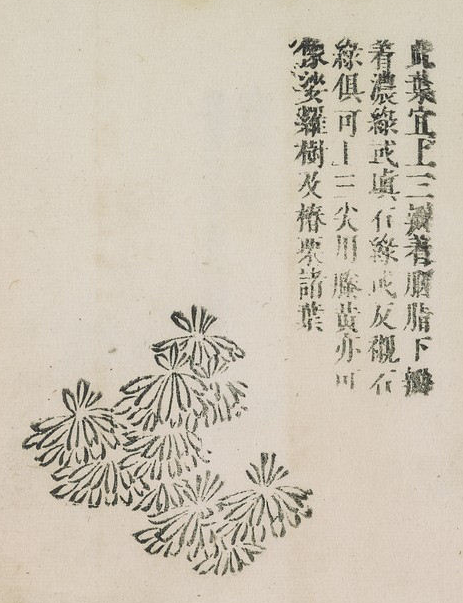 此葉宜上三瓣着胭脂下瓣
着濃綠或真石綠或反襯石
綠俱可上三尖用藤黃亦可
像娑羅樹及椿栗諸葉